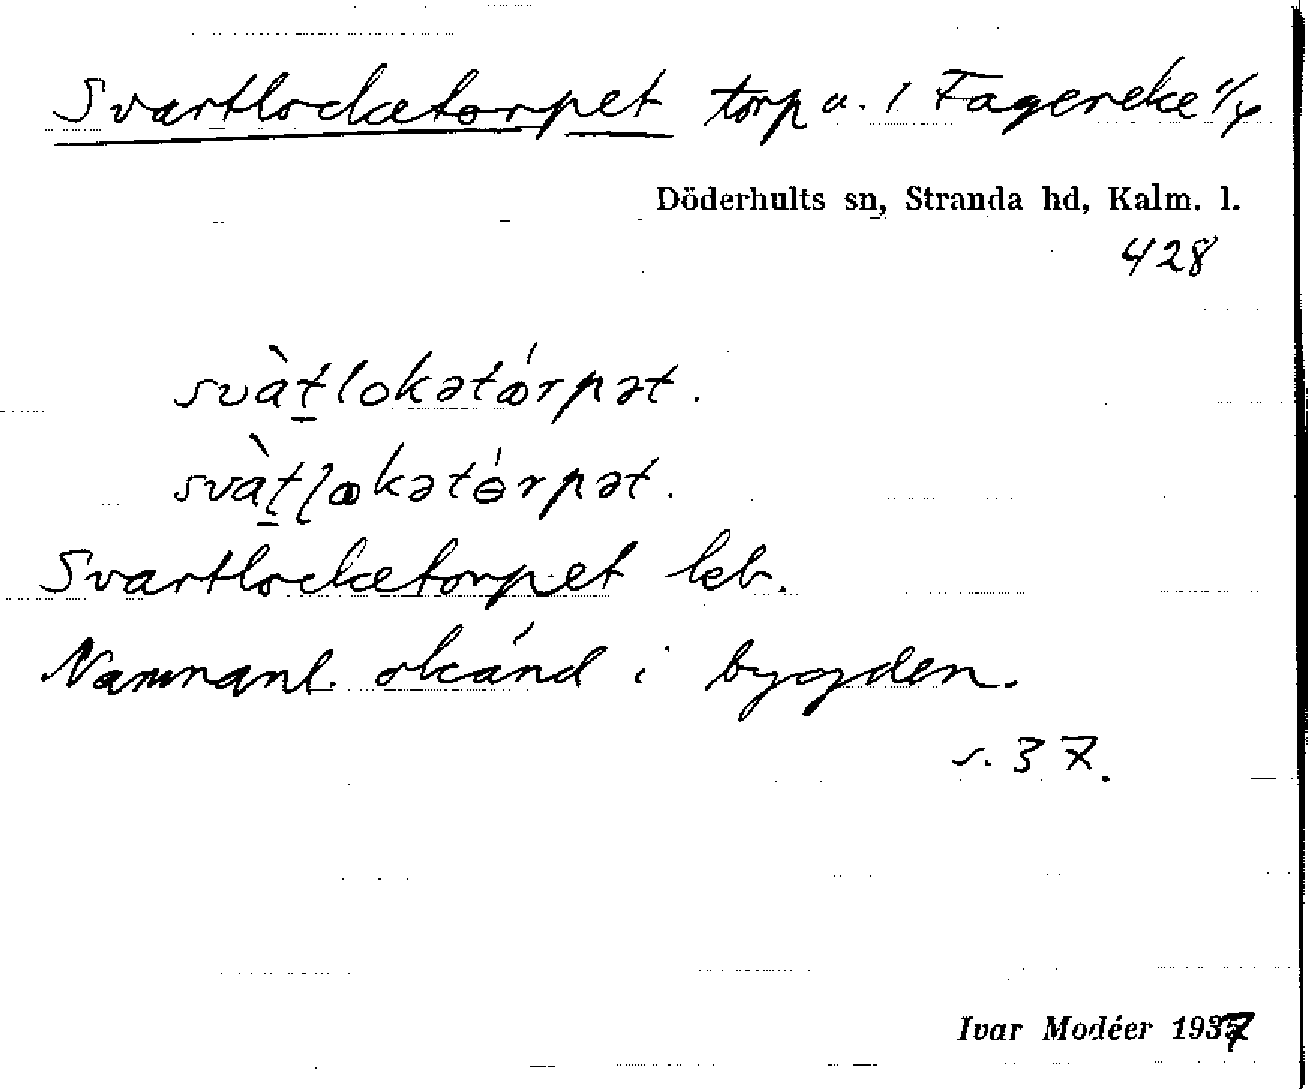 Svartlocketorpet torp u. 1 Fagereke 1/4
Döderhults sn, Stranda hd, Kalm. l.
428
svàt̠lokətórpət.
svàt̠ɭokətɵ́rpət.
Svartlocketorpet kb.
Namnanl. okánd i bygden.
s. 37.
Ivar Modéer 1937